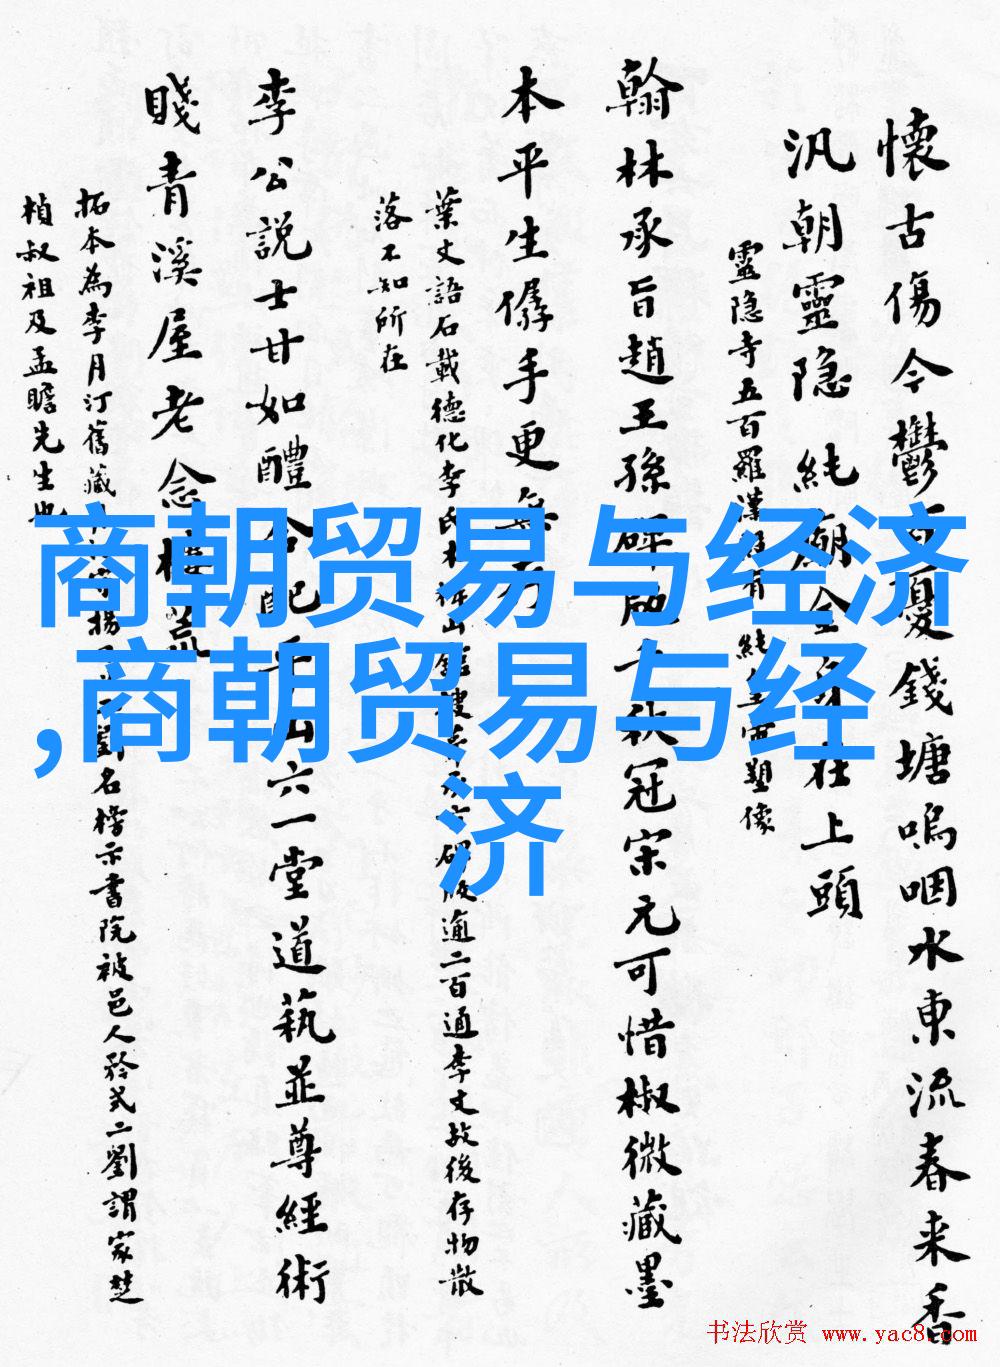 懷古傷今鬱百憂錢塘嗚咽水東流春来香
汎朝靈隐純廟金身在上頭
靈隐寺五百羅漢
純皇
塑像
翰林承旨趙王孫碑
冠宋元可惜椒微藏墨
本平生儔手更無
葉文語石載德化李氏木犀山
二百通李文故後存物散
落不知所在
李公説士甘如醴合配平山六一堂道藝並尊經術
賤青溪屋老念樓荒
拓本為李月汀舊藏
名榜示書院被邑人矜式二劉謂家楚
楨叔祖及孟瞻先生也
商朝贸易与经济
,商朝贸易与经
济
书法欣赏 www.yac8.com